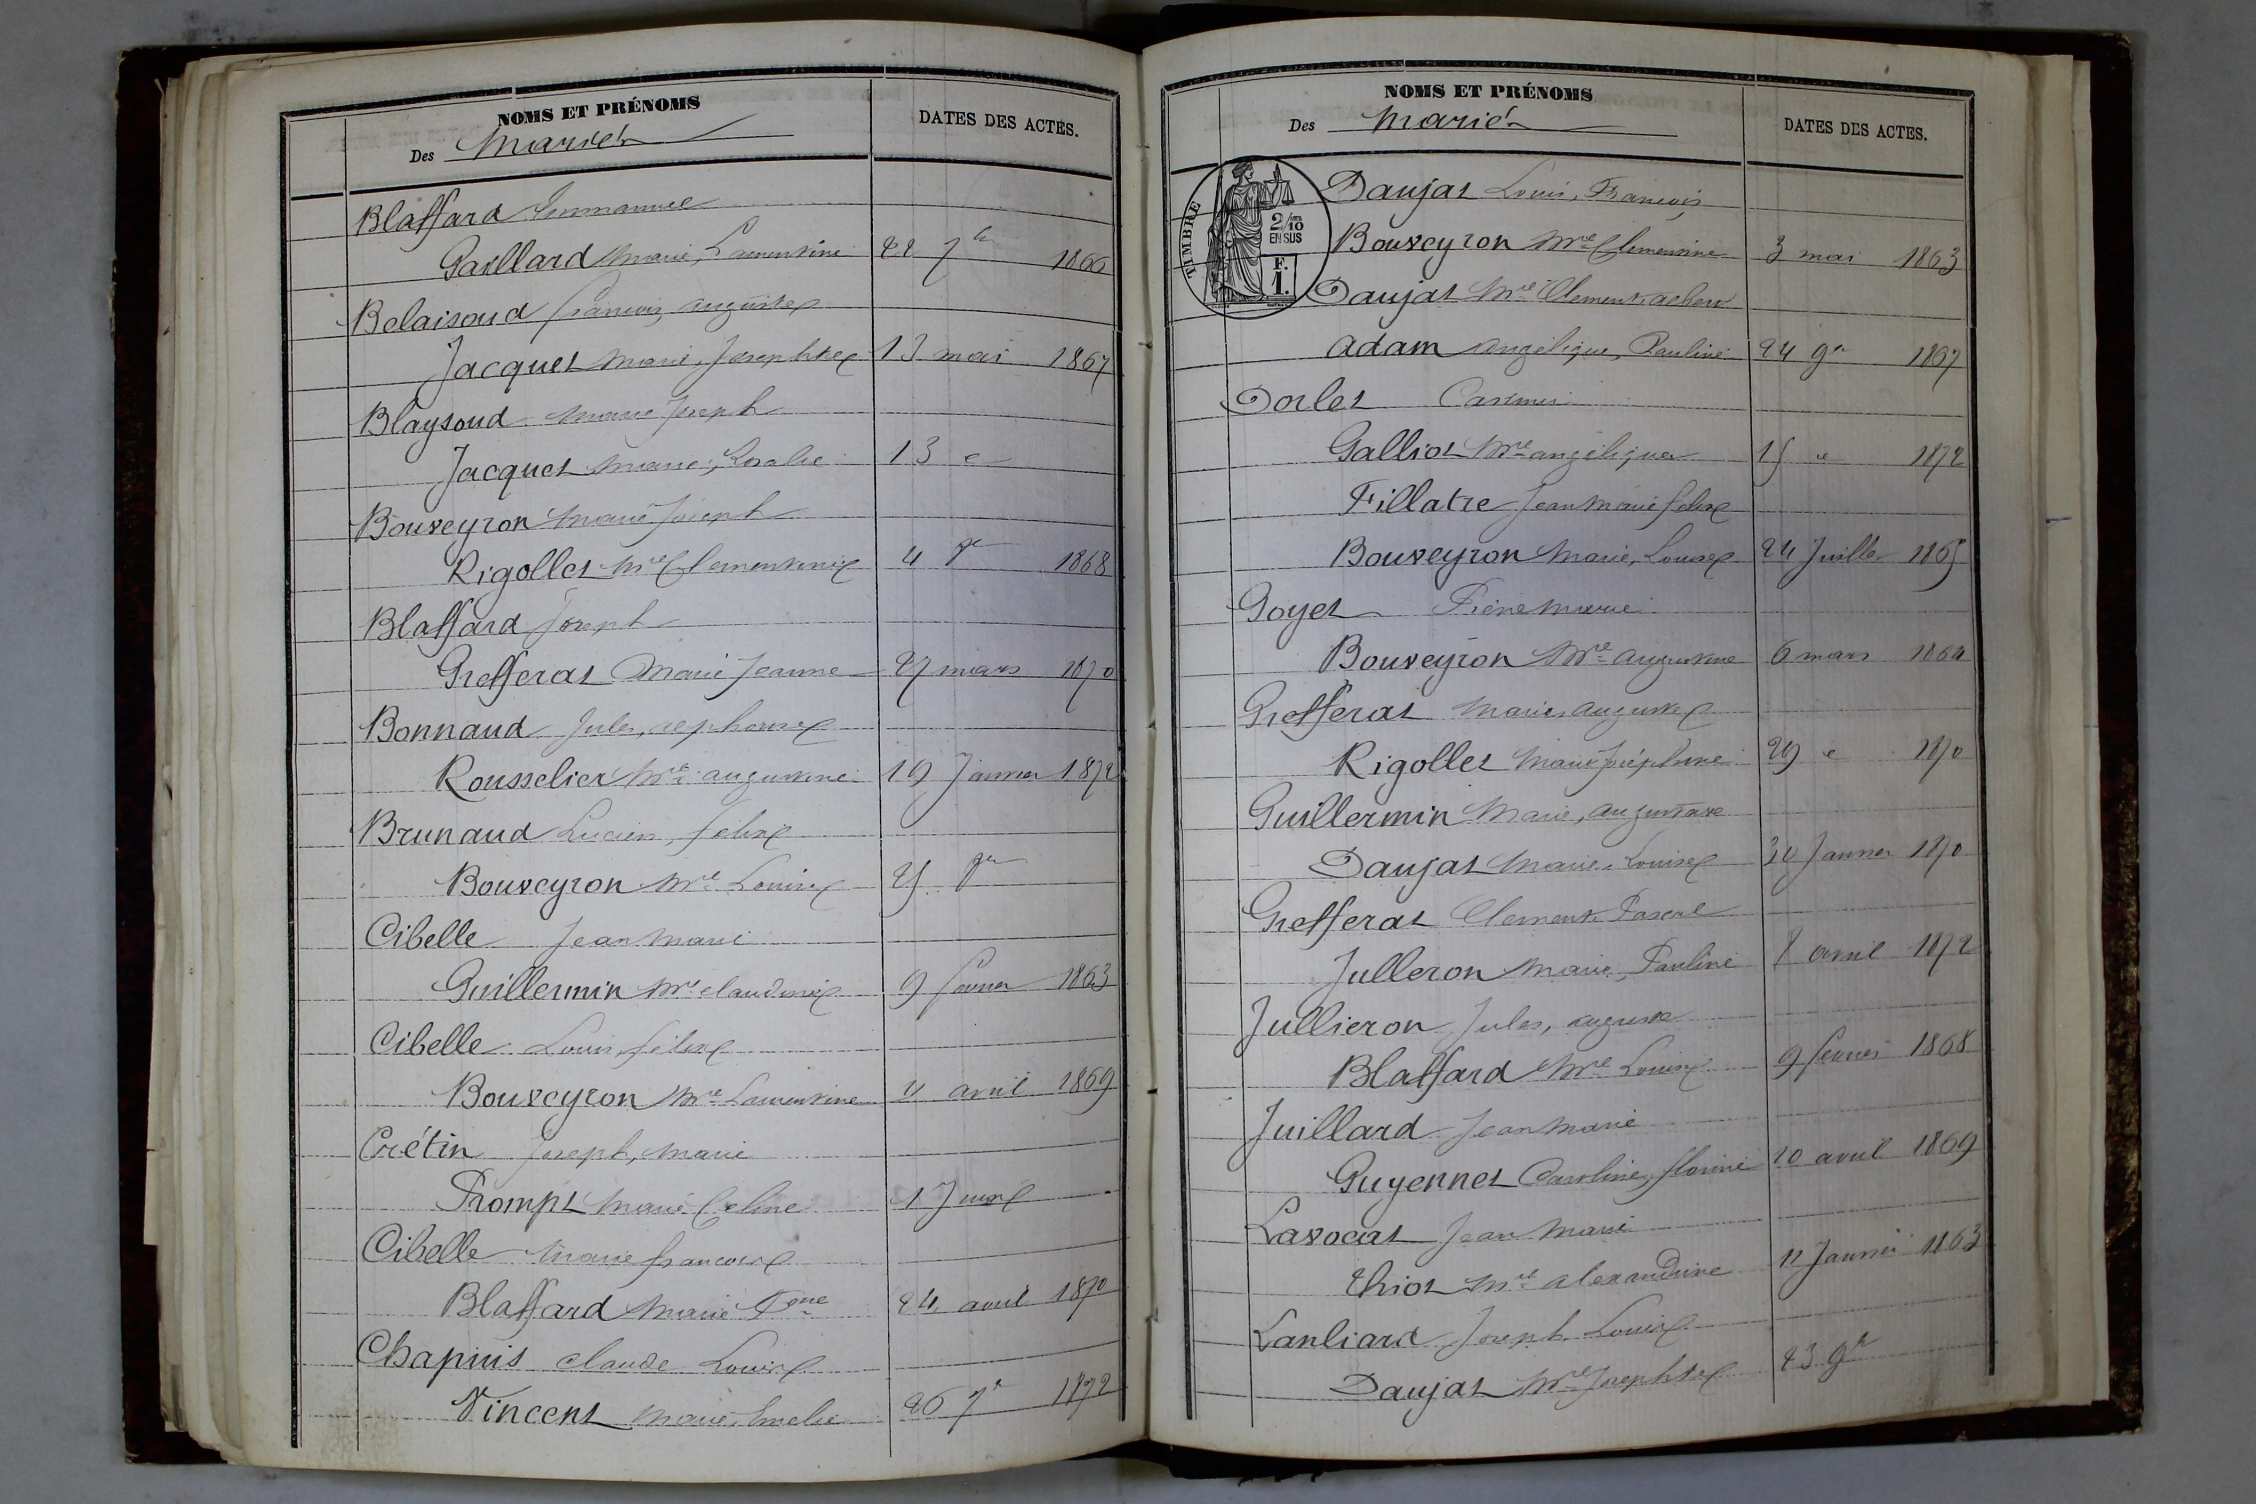 NOMS ET PRÉNOMS
Des Mariés
DATES DES ACTES.
Blaffard Emmanuel
Gaillard Marie, Laurentine 22 7bre 1866
Belaisoud francois auguste
Jacquet Marie, Josephte 13 mai 1867
Blaysoud Marie Joseph
Jacquet Marie, Rosalie 13 "
Bouveyron Marie Joseph
Rigollet Mie Clementine 4 1868
Blaffard Joseph
Grefferat Marie Jeanne 27 mars 1870
Bonnaud Jules, alphonse
Rousselier Mie augustine 19 Janvier 1872
Brunaud Lucien, felix
Bouveyron Mie Louise 25
Cibelle Jean Marie
Guillermin Mie claudine 9 fevrier 1863
Cibelle Louis, felix
Bouveyron Mie Laurentine 4 avril 1869
Crétin Joseph, Marie
Prompt Marie Celine 1 Juin
Cibelle Marie francois
Blaffard Marie Fçoise 24 avril 1870
Chapuis claude Louis
Vincent Marie, Emelie 26 7bre 1872
NOMS ET PRÉNOMS
Des Mariés
DATES DES ACTES.
TIMBRE
2/10 EN SUS
F. 1.
Daujat Louis, François
Bouveyron Mie Clementine 3 mai 1863
Daujat Mie Clement
Adam Angelique, Pauline 24 9bre 1867
Dorlet Casimir
Galliot Mie angelique 15 " 1872
Fillatre Jean Marie felix
Bouveyron Marie, Louise 24 Juillet 1865
Goyet Pierre Marie
Bouveyron Mie augustine 6 mars 1864
Grefferat Marie, auguste
Rigollet Marie Joséphine 29 " 1870
Guillermin Marie, augustave
Daujat Marie, Louise 30 Janvier 1870
Grefferat Clement Pascal
Julleron Marie, Pauline 8 avril 1872
Jullieron Jules, auguste
Blaffard Mie Louise 9 fevrier 1868
Juillard Jean Marie
Guyennet Caroline, florine 10 avril 1869
Lavocat Jean Marie
thiot Mie alexandrine 11 Janvier 1863
Lanliard Joseph Louis
Daujat Mie Josephte 23 9bre